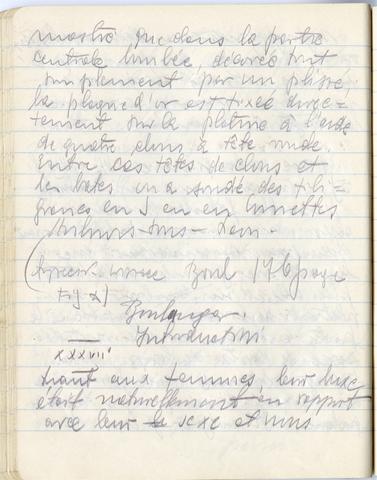 montre, que dans la partie
centrale bombée, décorée tout
simplement par un plissé,
la plaque d'or est fixée direc=
tement sur la platine à l'aide
de quatre clous à tête ronde.
Entre ces têtes de clous et
les bates on a soudé des fili=
granes en S ou en lunettes
(
Boul 176 page
Fig 2)
Boulanger.
Introduction
XXXVII
quant aux femmes, leur luxe
était naturellement en rapport
avec leur sexe et nous